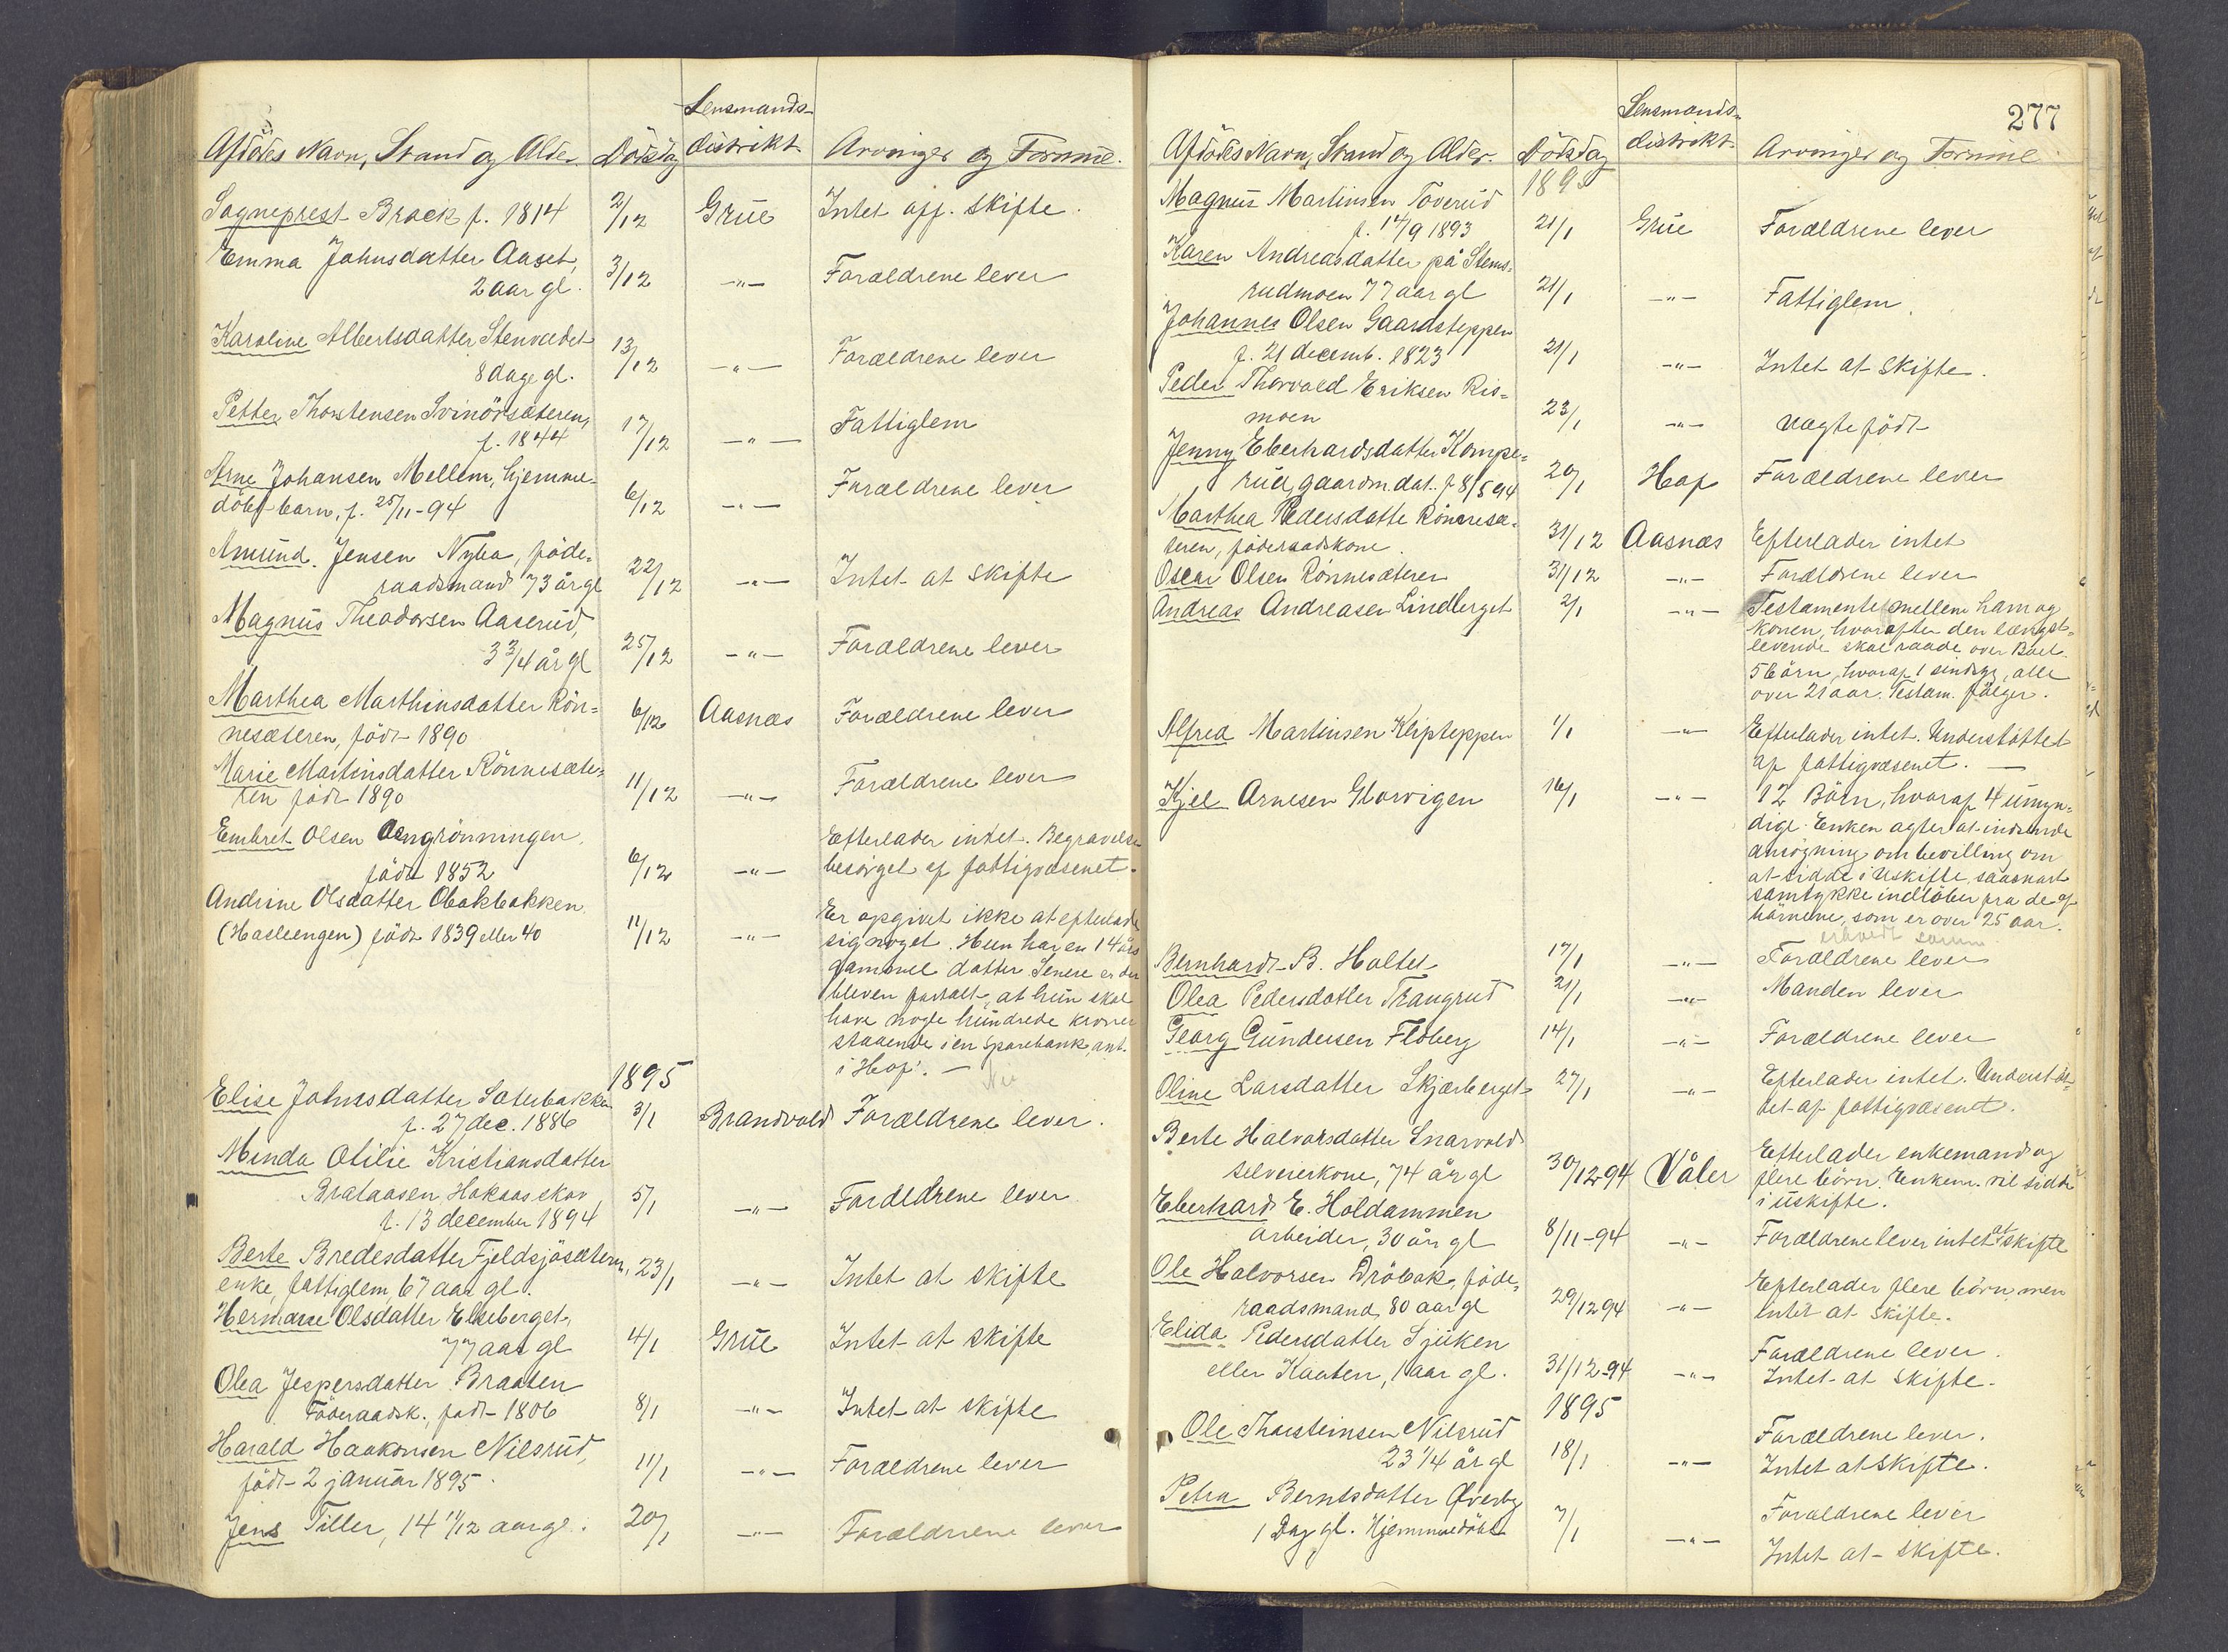 Lensmands-
Afdödes Navn, Stand og Alder. Dödsdag distrikt Arvinger og Formue.
Sogneprest Brock f. 1814 2/12 Grue Intet off. skifte.
Emma Johnsdatter Aaset,
2 aar gl. 3/12 -"- Forældrene lever
Karoline Albertsdatter Stenvadet
8 dage gl. 13/12 -"- Forældrene lever
Petter Thorstensen Svinörsæteren,
f. 1844 17/12 -"- Fattiglem
Arne Johansen Mellem, hjemme-
döbt barn, f. 25/11-94 6/12 -"- Forældrene lever
Amund Jensen Nyba, föde-
raadsmand 73 år gl 22/12 -"- Intet at skifte
Magnus Theodorsen Aaserud,
3 3/4 år gl 25/12 -"- Forældrene lever
Marthea Marthinsdatter Rön-
nesæteren, födt 1890 6/12 Aasnæs Forældrene lever
Marie Martinsdatter Rönnesæte-
ren födt 1890 11/12 -"- Forældrene lever
Embret OlsenÆngrönningen,
födt 1852 6/12 -"-
Efterlader intet. Begravelse
besörget af fattigvæsenet.
Andrine Olsdatter Obakbakken
(Hasleengen) födt 1839 eller 40 11/12 -"-
Er opgivet ikke at efterlade
sig noget. Hun har en 14 års
gammel datter. Senere er der
bleven fortalt, at hun skal
have nogle hundrede kroner
staaende i en Sparebank, ant.
i Hof. -
1895
Elise Johnsdatter Sæterbakken
f. 27 dec. 1886 3/1 Brandvold Forældrene lever.
Minda Otilie Kristiansdatter
Brataasen, Hoksaasskov
f. 13 december 1894 5/1 -"- Forældrene lever
Berte Bredesdatter Fjeldsjösætern,
enke, fattiglem, 67 aar gl. 23/1 -"- Intet at skifte
Hermane Olsdatter Elseberget,
77 aar gl 4/1 Grue Intet at skifte
Olea Jespersdatter Braaten
Föderaadsk., födt 1806 8/1 -"- Intet at skifte
Harald Haakonsen Nilsrud,
födt 2 januar 1895. 11/1 -"- Forældrene lever
Jens Tiller, 14 11/12 aar gl. 20/1 -"- Forældrene lever
277
Lensmands-
Afdödes Navn, Stand og Alder. Dödsdag distrikt Arvinger og Formue
1895
Magnus Martinsen Toverud
f. 14/9 1893 21/1 Grue Forældrene lever
Karen Andreasdatter på Stems-
rudmoen 77 aar gl 21/1 -"- Fattiglem.
Johannes Olsen Gaardsteppen
f. 21 decemb. 1823 21/1 -"- Intet at skifte.
Peder Thorvald Eriksen Ris-
moen 23/1 -"- Uægte född
Jenny Eberhardsdatter Kompe-
rud, gaardm.dat. f. 8/5 94 20/1 Hof Forældrene lever
Marthea Pedersdatte Rönnesæ-
teren, föderaadskone. 31/12 Aasnæs Efterlader intet
Oscar Olsen Rönnesæteren 31/12 -"- Forældrene lever
Andreas Andreasen Lindberget 2/1 -"- Testamente mellem ham og
konen, hvorefter den længst-
levende skal raade over Boet.
5 börn, hvoraf 1 sindsyg, alle
over 21 aar. Testam. fölger.
Alfred Martinsen Klipteppen 1/1 -"- Efterlader intet. Understöttet
af fattigvæsenet. -
Kjel Arnesen Glorvigen 16/1 -"- 12 Börn, hvoraf 4 umyn-
dige. Enken agter at indsende
ansögning om bevilling om
at sidde i uskifte, saasnart
samtykke indlöber fra de af
börnene, som er over 25 aar.
Bernhard B. Holtet 17/1 -"- Forældrene lever
Olea Pedersdatter Trangrud 21/1 -"- Manden lever
Georg Gundersen Floberg 14/1 -"- Forældrene lever
Oline Larsdatter Skjærberget 27/1 -"- Efterlader intet. Understöt-
tet af fattigvæsenet.
Berte Halvorsdatter Snarvold
selveierkone, 74 år gl 30/12 94 Våler
Efterlader enkemand og
flere börn. Enkem. vil sidde
i uskifte.
Eberhard E. Holdammen
arbeider, 30 år gl 8/11-94 -"- Forældrene lever intet at skifte
Ole Halvorsen Dröbak, föde-
raadsmand, 80 aar gl 29/12 94 -"-
Efterlader flere börn, men
intet at skifte.
Elida Pedersdatter Sjuken
eller Kaaten, 1 aar gl. 31/12-94 -"-
Forældrene lever.
Intet at skifte.
1895
Ole Thorsteinsen Nilsrud
23 1/4 år gl 18/1 -"-
Forældrene lever.
Intet at skifte.
Petra Berntsdatter Øverby
1 Dag gl. Hjemmedöbt 7/1 -"-
Forældrene lever
Intet at skifte.